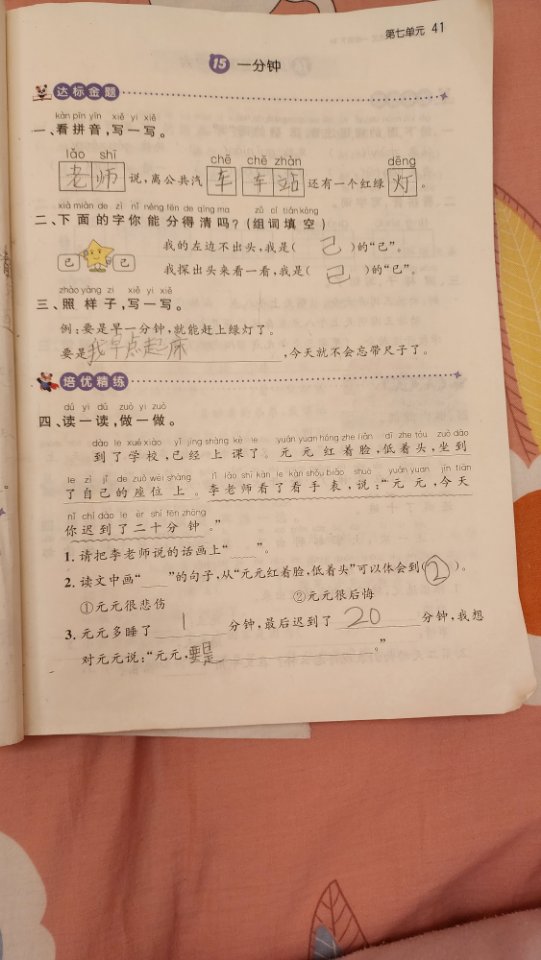 第七单元 41
15 一分钟
达标金题
kàn pīn yīn xiě yi xiě
一、看拼音,写一写。
lǎo shī chē chē zhàn dēng
老师说,离公共汽车车站还有一个红绿灯。
xià miàn de zì nǐ néng fēn de qīng ma zǔ cí tián kòng
二、下面的字你能分得清吗?(组词填空)
我的左边不出头,我是( 己 )的“己”。
己 已
我探出头来看一看,我是( 已 )的“已”。
zhào yàng zi xiě yi xiě
三、照样子,写一写。
例:要是早一分钟,就能赶上绿灯了。
要是我早点起床,今天就不会忘带尺子了。
培优精练
dú yi dú zuò yi zuò
四、读一读,做一做。
dào le xué xiào yǐ jīng shàng kè le yuán yuan hóng zhe liǎn dī zhe tóu zuò dào
到了学校,已经上课了。元元红着脸,低着头,坐到
le zì jǐ de zuò wèi shàng lǐ lǎo shī kàn le kàn shǒu biǎo shuō yuán yuan jīn tiān
了自己的座位上。李老师看了看手表,说:“元元,今天
nǐ chí dào le èr shí fēn zhōng
你迟到了二十分钟。”
1.请把李老师说的话画上“____”。
2.读文中画“____”的句子,从“元元红着脸,低着头”可以体会到( 2 )。
①元元很悲伤 ②元元很后悔
3.元元多睡了 1 分钟,最后迟到了 20 分钟,我想
对元元说:“元元,要是 。”